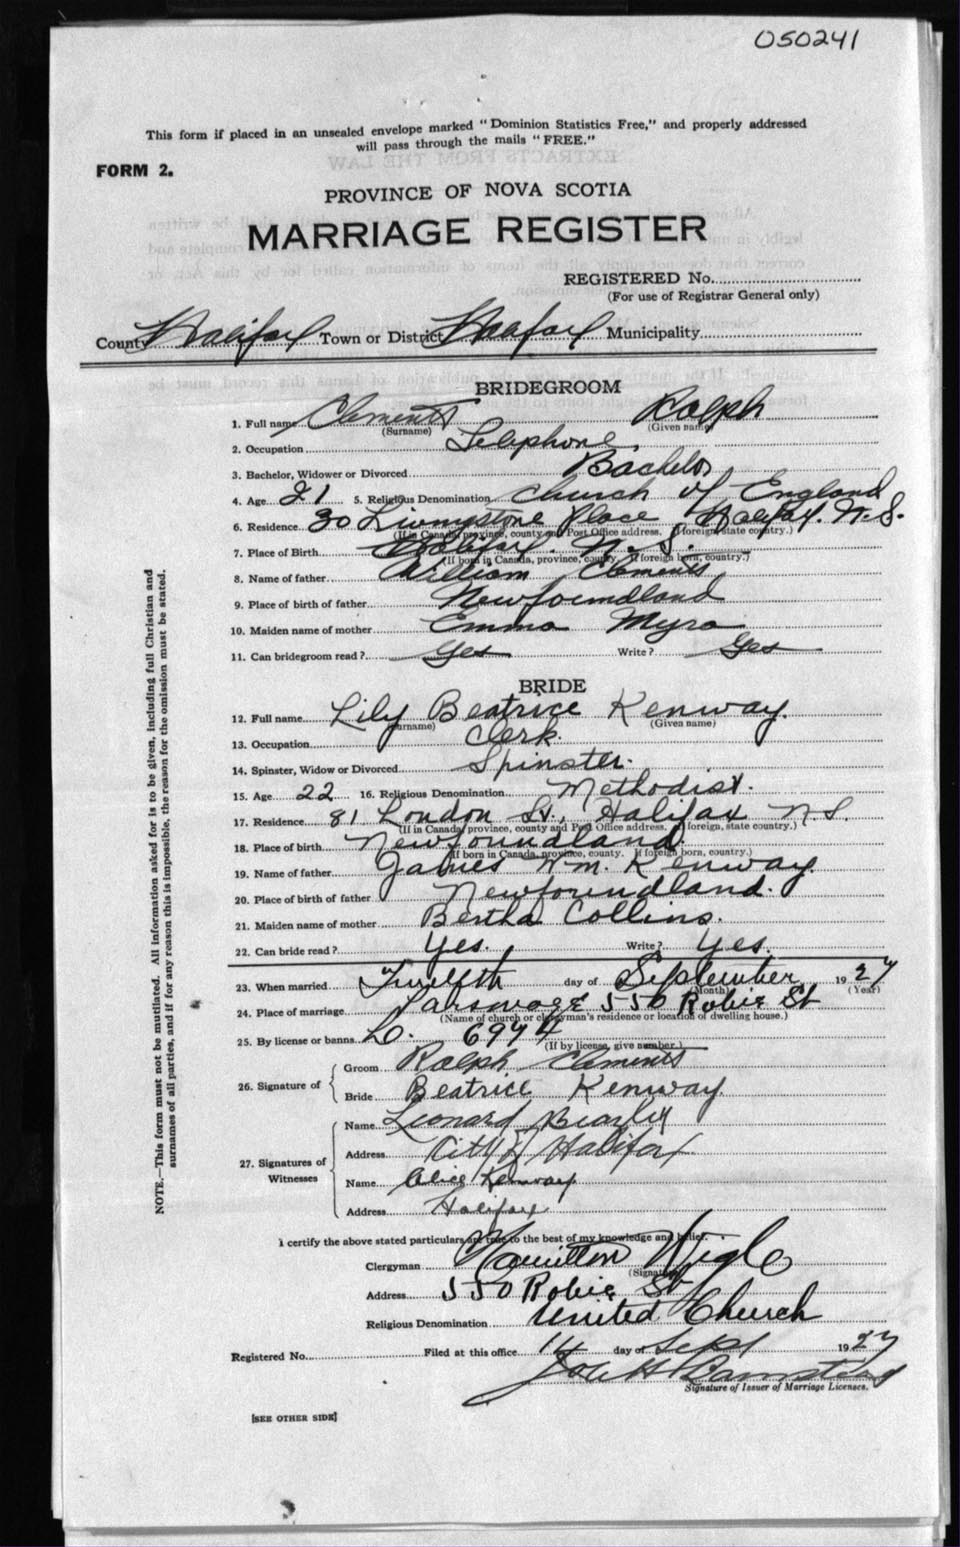 050241
This form if placed in an unsealed envelope marked "Dominion Statistics Free," and properly addressed
will pass through the mails "FREE."
FORM 2.
PROVINCE OF NOVA SCOTIA
MARRIAGE REGISTER
REGISTERED No.
(For use of Registrar General only)
County Halifax Town or District Halifax Municipality
BRIDEGROOM
1. Full name Clements Ralph
(Surname) (Given name)
2. Occupation Telephone
3. Bachelor, Widower or Divorced Bachelor
4. Age 21 5. Religious Denomination Church of England
6. Residence 30 Livingstone Place, Halifax. N.S.
(If in Canada, province, county and Post Office address. If foreign, state country.)
7. Place of Birth Halifax. N.S.
(If born in Canada, province, county. If foreign born, country.)
8. Name of father William Clements
9. Place of birth of father Newfoundland
10. Maiden name of mother Emma Myra
11. Can bridegroom read? Yes Write? Yes
BRIDE
12. Full name Lily Beatrice Kenway.
(Surname) (Given name)
13. Occupation Clerk.
14. Spinster, Widow or Divorced Spinster.
15. Age 22 16. Religious Denomination Methodist.
17. Residence 81 London St., Halifax N.S.
(If in Canada, province, county and Post Office address. If foreign, state country.)
18. Place of birth Newfoundland
(If born in Canada, province, county. If foreign born, country.)
19. Name of father James Wm. Kenway.
20. Place of birth of father Newfoundland.
21. Maiden name of mother Bertha Collins.
22. Can bride read? Yes. Write? Yes.
23. When married Twelfth day of September 1927
(Month) (Year)
24. Place of marriage Parsonage 550 Robie St
(Name of church or clergyman's residence or location of dwelling house.)
25. By license or banns L. 6974
(If by license, give number.)
26. Signature of Groom Ralph Clements
Bride Beatrice Kenway.
27. Signatures of Witnesses Name Leonard
Address City of Halifax
Name Alice Kenway
Address Halifax
I certify the above stated particulars are true to the best of my knowledge and belief.
Clergyman Hamilton Wigle
(Signature)
Address 550 Robie St
Religious Denomination United Church
Registered No. Filed at this office 14 day of Sept 1927
Signature of Issuer of Marriage Licenses.
[SEE OTHER SIDE]
NOTE.—This form must not be mutilated. All information asked for is to be given, including full Christian and
surnames of all parties, and if for any reason this is impossible, the reason for the omission must be stated.